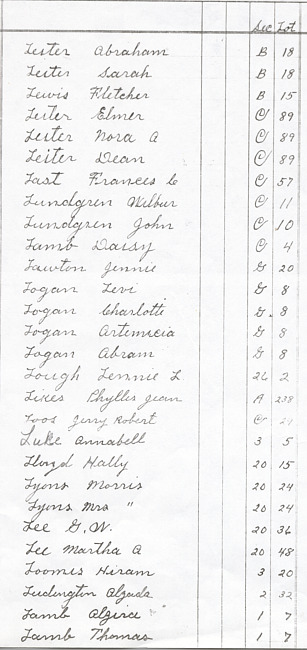 Sec Lot
Lester Abraham B 18
Lester Sarah B 18
Lewis Fletcher B 15
Lester Elmer C 89
Lester Nora A C 89
Lester Dean C 89
Last Frances C C 57
Lundgren Wilbur C 11
Lundgren John C 10
Lamb Daisy C 4
Lawton Jennie G 20
Logan Levi G 8
Logan Charlotte G. 8
Logan Artemicia G 8
Logan Abram G 8
Lough Lennie L 26 2
Likes Phyllis Jean A 238
Loos Jerry Robert C 21
Luke Annabell 3 5
Lloyd Hally 20 15
Lyons Morris 20 24
Lyons Mrs " 20 24
Lee G.W. 20 36
Lee Martha A 20 48
Loomis Hiram 3 20
Ludington Algada 2 32
Lamb 1 7
Lamb Thomas 1 7